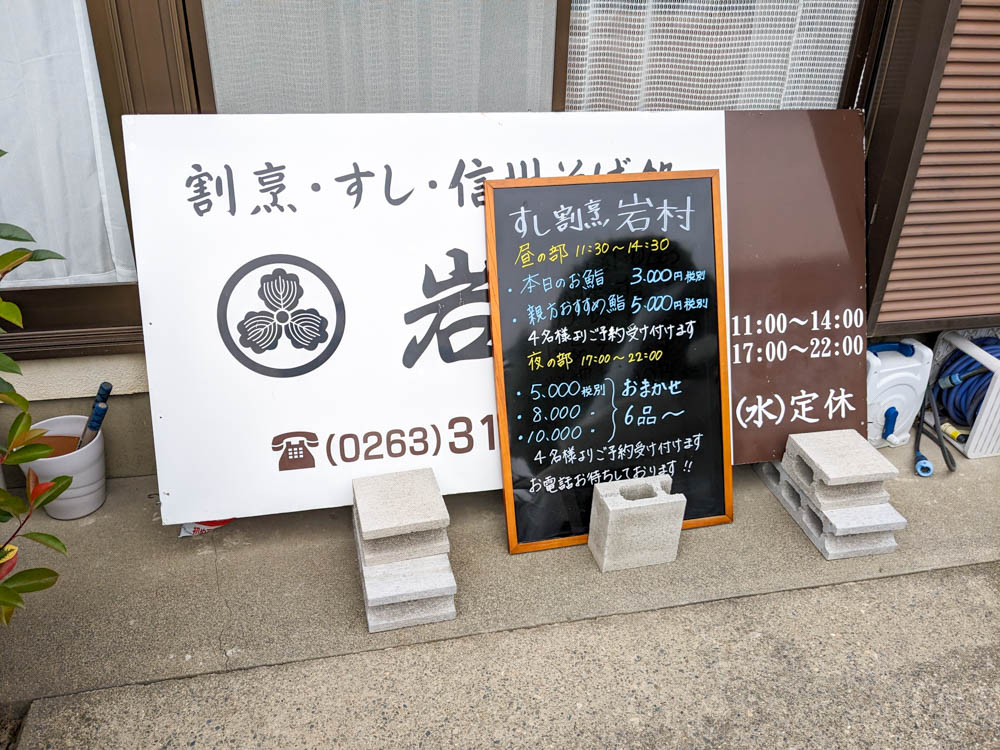 割烹・すし・信州そば処
岩
(0263)31
11:00〜14:00
17:00〜22:00
(水)定休
すし割烹 岩村
昼の部 11:30〜14:30
・本日のお鮨 3.000円税別
・親方おすすめ鮨 5.000円税別
4名様よりご予約受け付けます
夜の部 17:00〜22:00
・5.000税別
・8.000 〃
・10.000 〃
おまかせ
6品〜
4名様よりご予約受け付けます
お電話お待ちしております!!